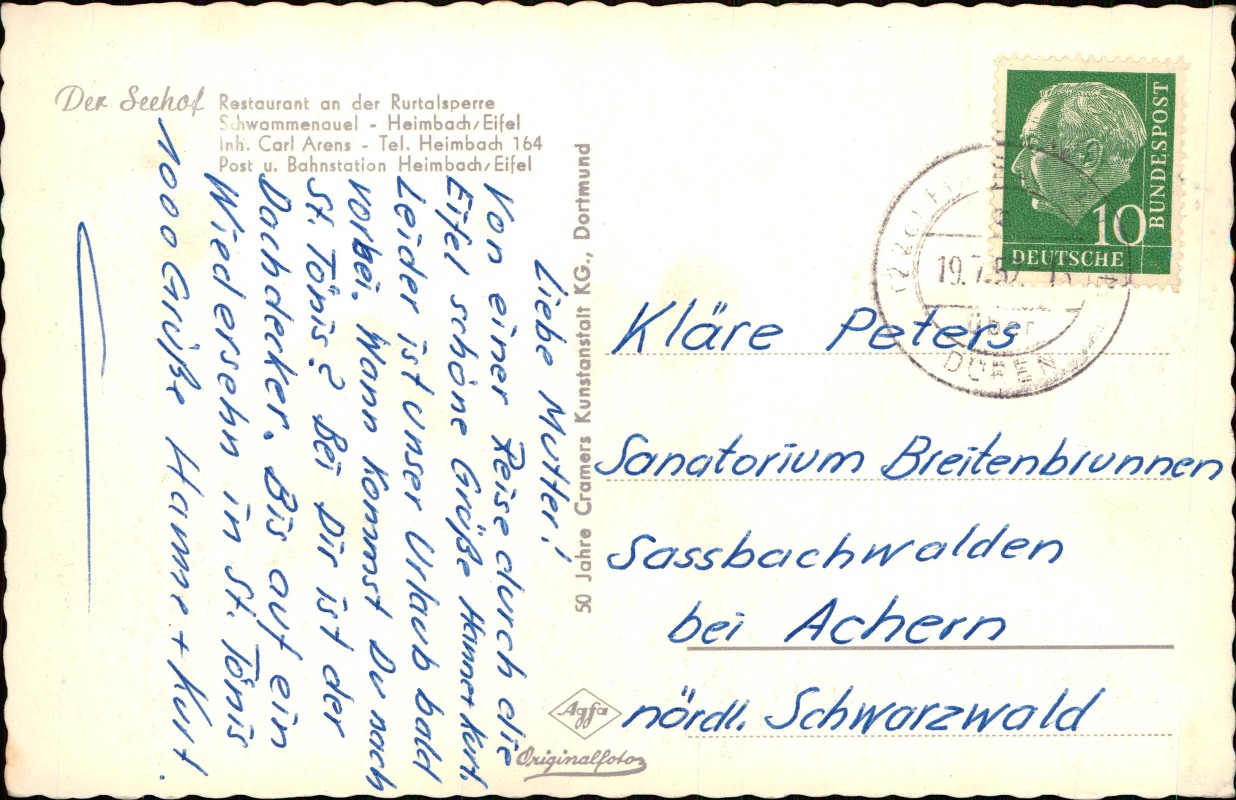 Der Seehof
Restaurant an der Rurtalsperre
Schwammenauel - Heimbach/Eifel
Inh. Carl Arens - Tel. Heimbach 164
Post u. Bahnstation Heimbach/Eifel
Liebe Mutter!
Von einer Reise durch die
Eifel schöne Grüße Hanne + Kurt.
Leider ist unser Urlaub bald
vorbei. Wann kommst Du nach
St. Tönis? Bei Dir ist der
Dachdecker. Bis auf ein
Wiedersehn in St. Tönis
1000 Grüße Hanne + Kurt.
50 Jahre Cramers Kunstanstalt KG., Dortmund
Agfa
Originalfoto
10
BUNDESPOST
DEUTSCHE
19.7.57
über
DÜREN
Kläre Peters
Sanatorium Breitenbrunnen
Sassbachwalden
bei Achern
nördl. Schwarzwald